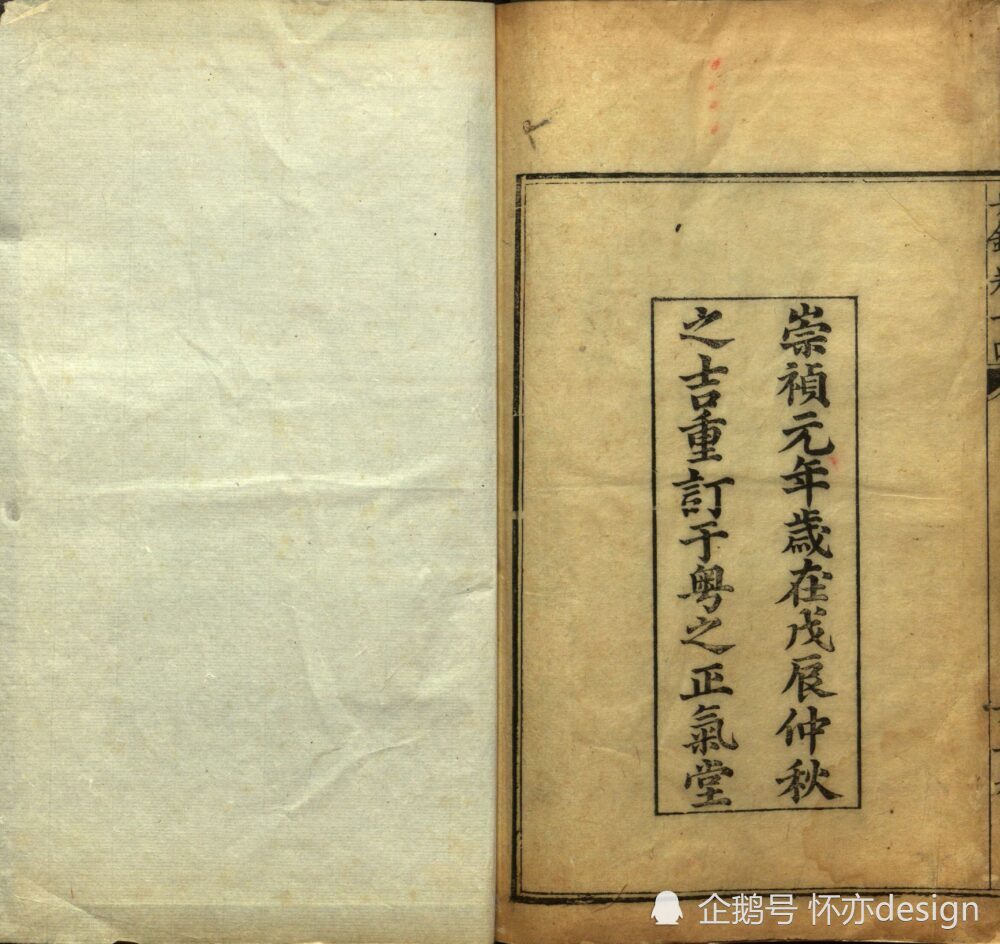 崇禎元年歲在戊辰仲秋
之吉重訂于粤之正氣堂
企鹅号 怀亦design